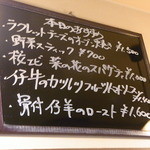 本日のおすすめ
・ラクレットチーズ ¥1,500
・野菜スティック ¥700
・桜エビ 菜の花のスパゲティ ¥1,000
・仔牛のカツレツ フルーツトマトソース
・骨付仔羊のロースト ¥1,600